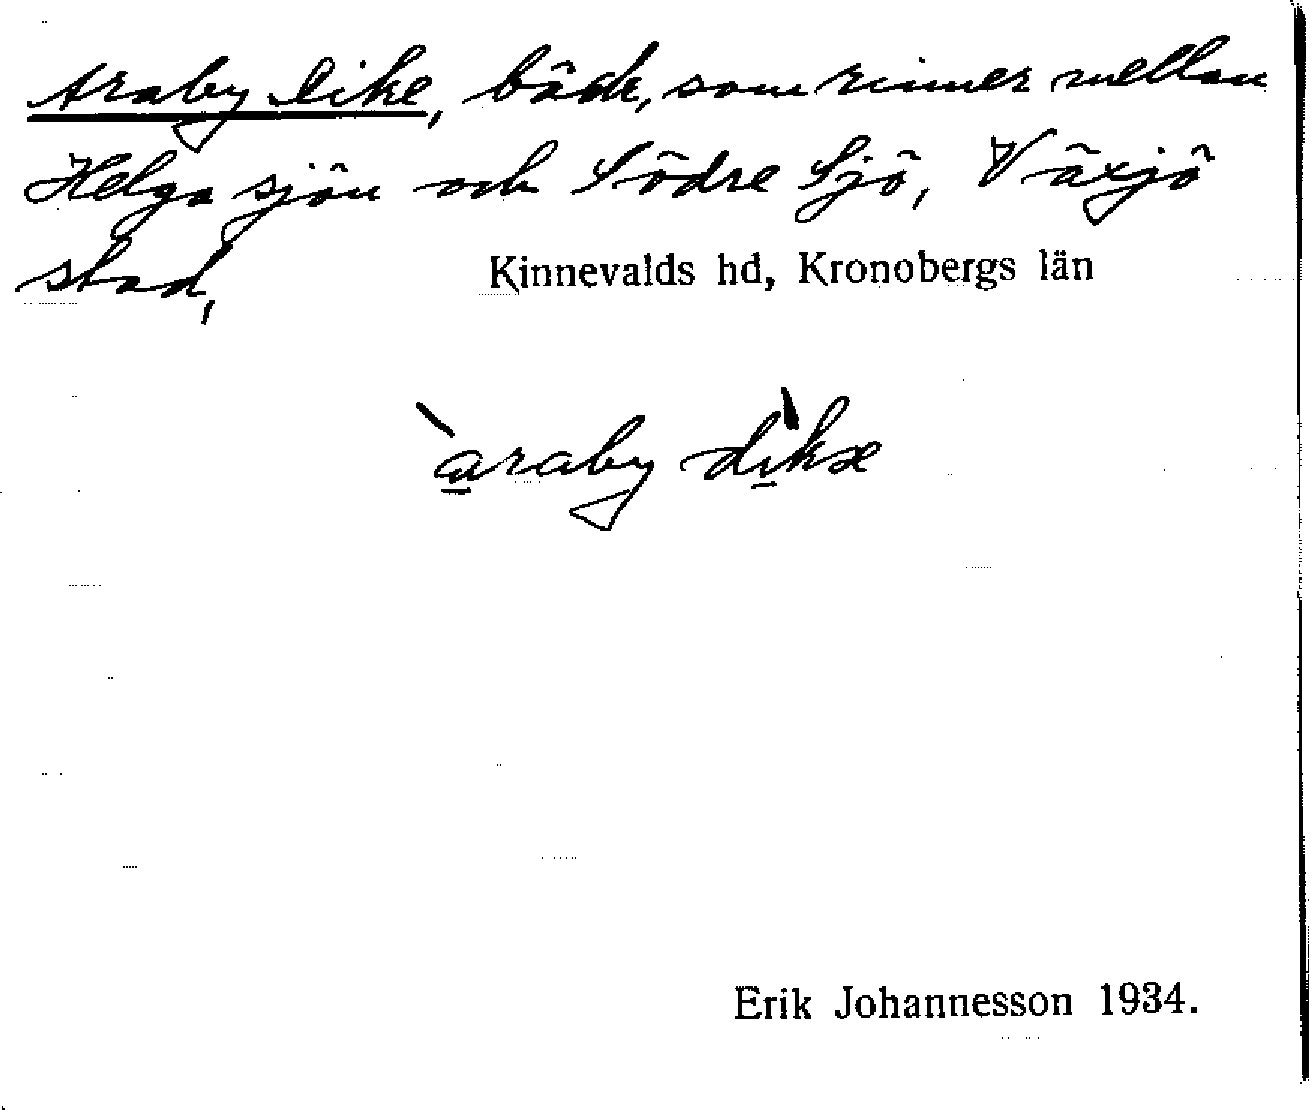 Araby dike, bäck, som rinner mellan
Helga sjön och Södre Sjö, Växjö
stad, Kinnevalds hd, Kronobergs län
àraby dìkæ
Erik Johannesson 1934.